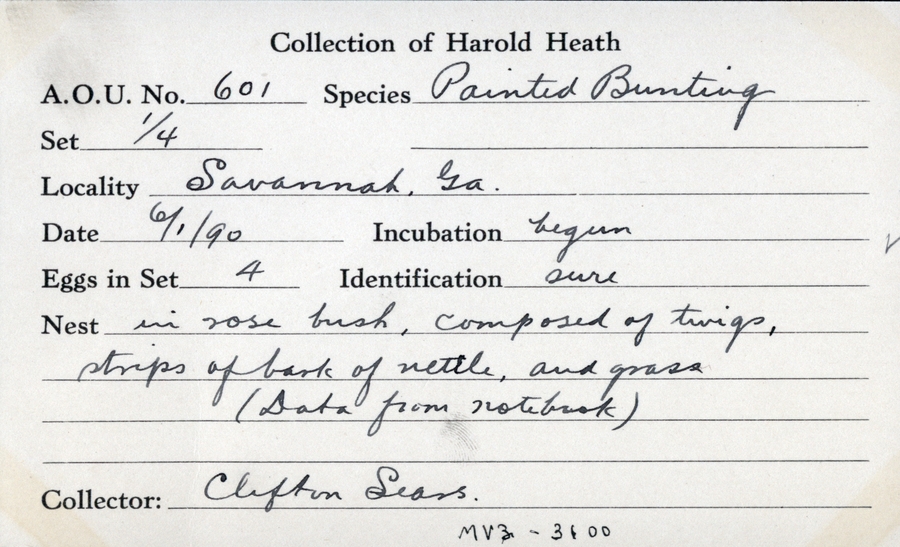 Collection of Harold Heath
A.O.U. No. 601 Species Painted Bunting
Set 1/4
Locality Savannah, Ga.
Date 6/1/90 Incubation begun
Eggs in Set 4 Identification sure
Nest in rose bush, composed of twigs,
strips of bark of nettle, and grass
(Data from notebook)
Collector: Clifton Sears.
MVZ - 3100